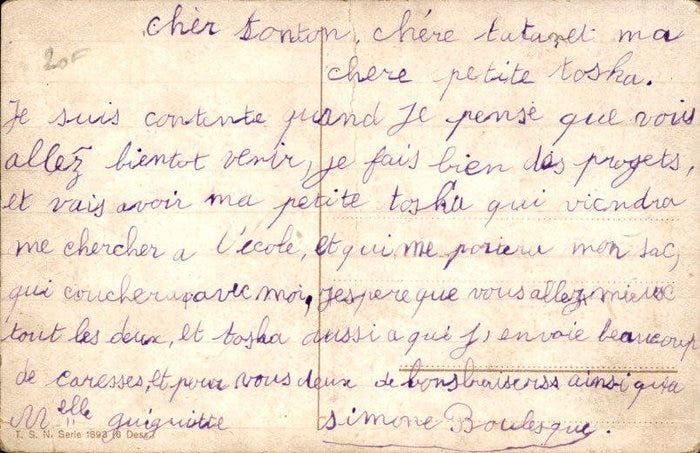 20F
chèr tonton, chère tata et ma
chere petite toska.
Je suis contente quand Je pense que vous
allez bientot venir, je fais bien des projets,
et vais avoir ma petite toska qui viendra
me chercher a l'école, et qui me portera mon sac,
qui couchera avec moi, j'espere que vous allez mieux
tout les deux, et toska aussi a qui j'envoie beaucoup
de caresses, et pour vous deux de bons baisers ainsi qu'a
Melle guiguitte simone Boulesque.
T. S. N. Serie 1893 (6 Dess.)